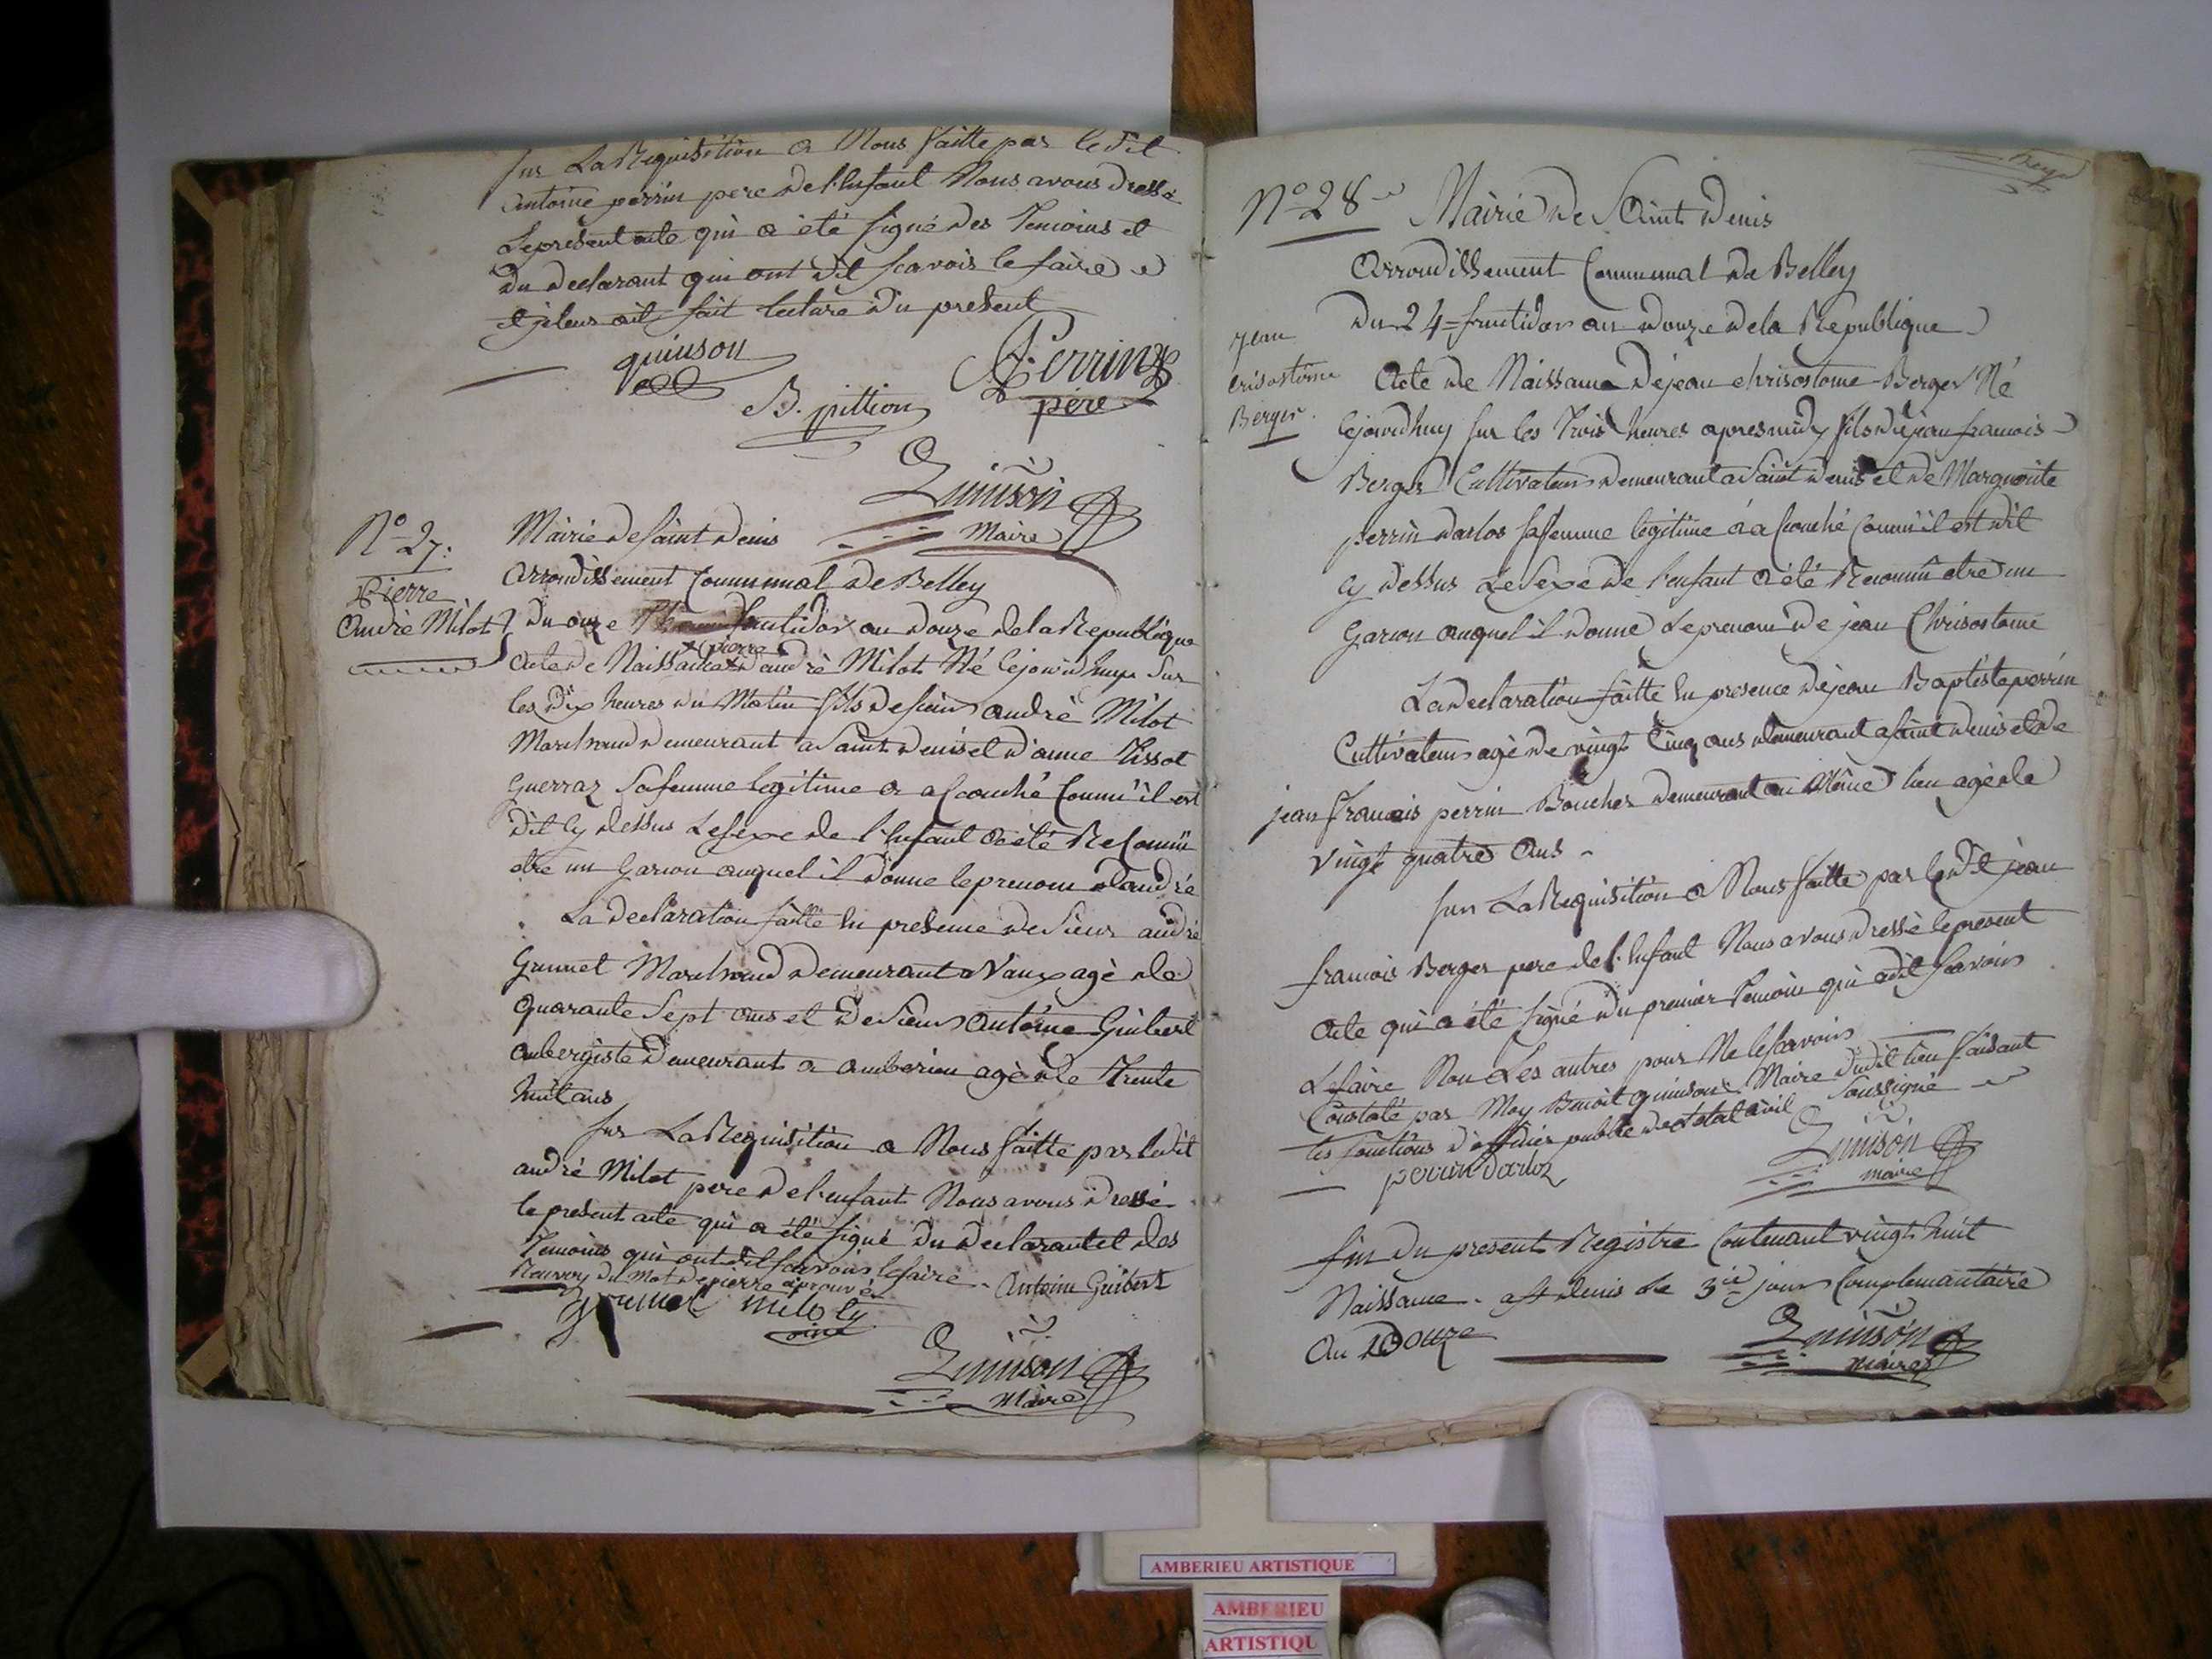 Sur La Requisition a Nous faitte par ledit
antoine perrin pere de l'Enfant Nous avons dressé
Le present acte qui a été signé des Temoins et
du declarant qui ont dit scavoir le faire
et je leur ait fait lecture du present
quinson
A. Perrin
B. pittion
père
Quinson
Maire
No 27:
Pierre
André Milot
Mairie de saint denis
Arrondissement Communal de Belley
du onze fructidor an douze de la Republique
x pierre
Acte de Naissance x d'andré Milot Né lejourdhuy Sur
les Dix heures du Matin fils de sieur andré Milot
Marchand demeurant a Saint denis et d'anne Tissot
Guerraz Sa femme legitime a acouché Comm'il est
dit Cy dessus Le sexe de l'Enfant a été ReConnu
etre un Garcon auquel il donne le prenom d'andré
La declaration faitte En presence de Sieur andré
Grumet Marchand demeurant a Vaux agé de
quarante Sept ans et de Sieur Antoine Guibert
aubergiste demeurant a amberieu agé de Trente
huit ans
Sur La Requisition a Nous faitte par ledit
andré Milot pere de l'enfant Nous avons dressé
le present acte qui a été signé du declarant et des
Temoins qui ont dit scavoir le faire
Renvoy du mot de pierre aprouvé
Antoine Guibert
grumet milot
Quinson
Maire
No 28
Mairie de Saint Denis
Arrondissement Communal de Belley
Du 24 = fructidor an douze de la Republique
jean
crisostome
Berger
Acte de Naissance de jean chrisostome Berger Né
lejourdhuy sur les Trois heures apres midy fils de jean francois
Berger Cultivateur demeurant a Saint denis et de Marguerite
perrin darlos sa femme légitime a acouché Comm'il est dit
Cy dessus Le Sexe de l'enfant a été Reconnu etre un
Garcon auquel il donne Le prenom de jean Chrisostome
La declaration faitte En presence de jean Baptiste perrin
Cultivateur agé de vingt Cinq ans demeurant a saint denis et de
jean francois perrin Boucher demeurant au Même lieu agé de
vingt quatre ans
Sur La Requisition a Nous faitte par ledit jean
francois Berger pere de l'Enfant Nous avons dressé le present
Acte qui a été signé du premier Temoin qui a dit scavoir
Le faire Non Les autres pour Ne le scavoir
Constaté par Moy Benoit quinson Maire dudit lieu faisant
les fonctions d'officier public de L'etat Civil Soussigné
perrin darloz
Quinson
maire
fin du present Registre Contenant vingt huit
Naissance. a St denis le 3ie jour Complemantaire
An Douze
Quinson
Maire
AMBERIEU ARTISTIQUE
AMBERIEU
ARTISTIQU